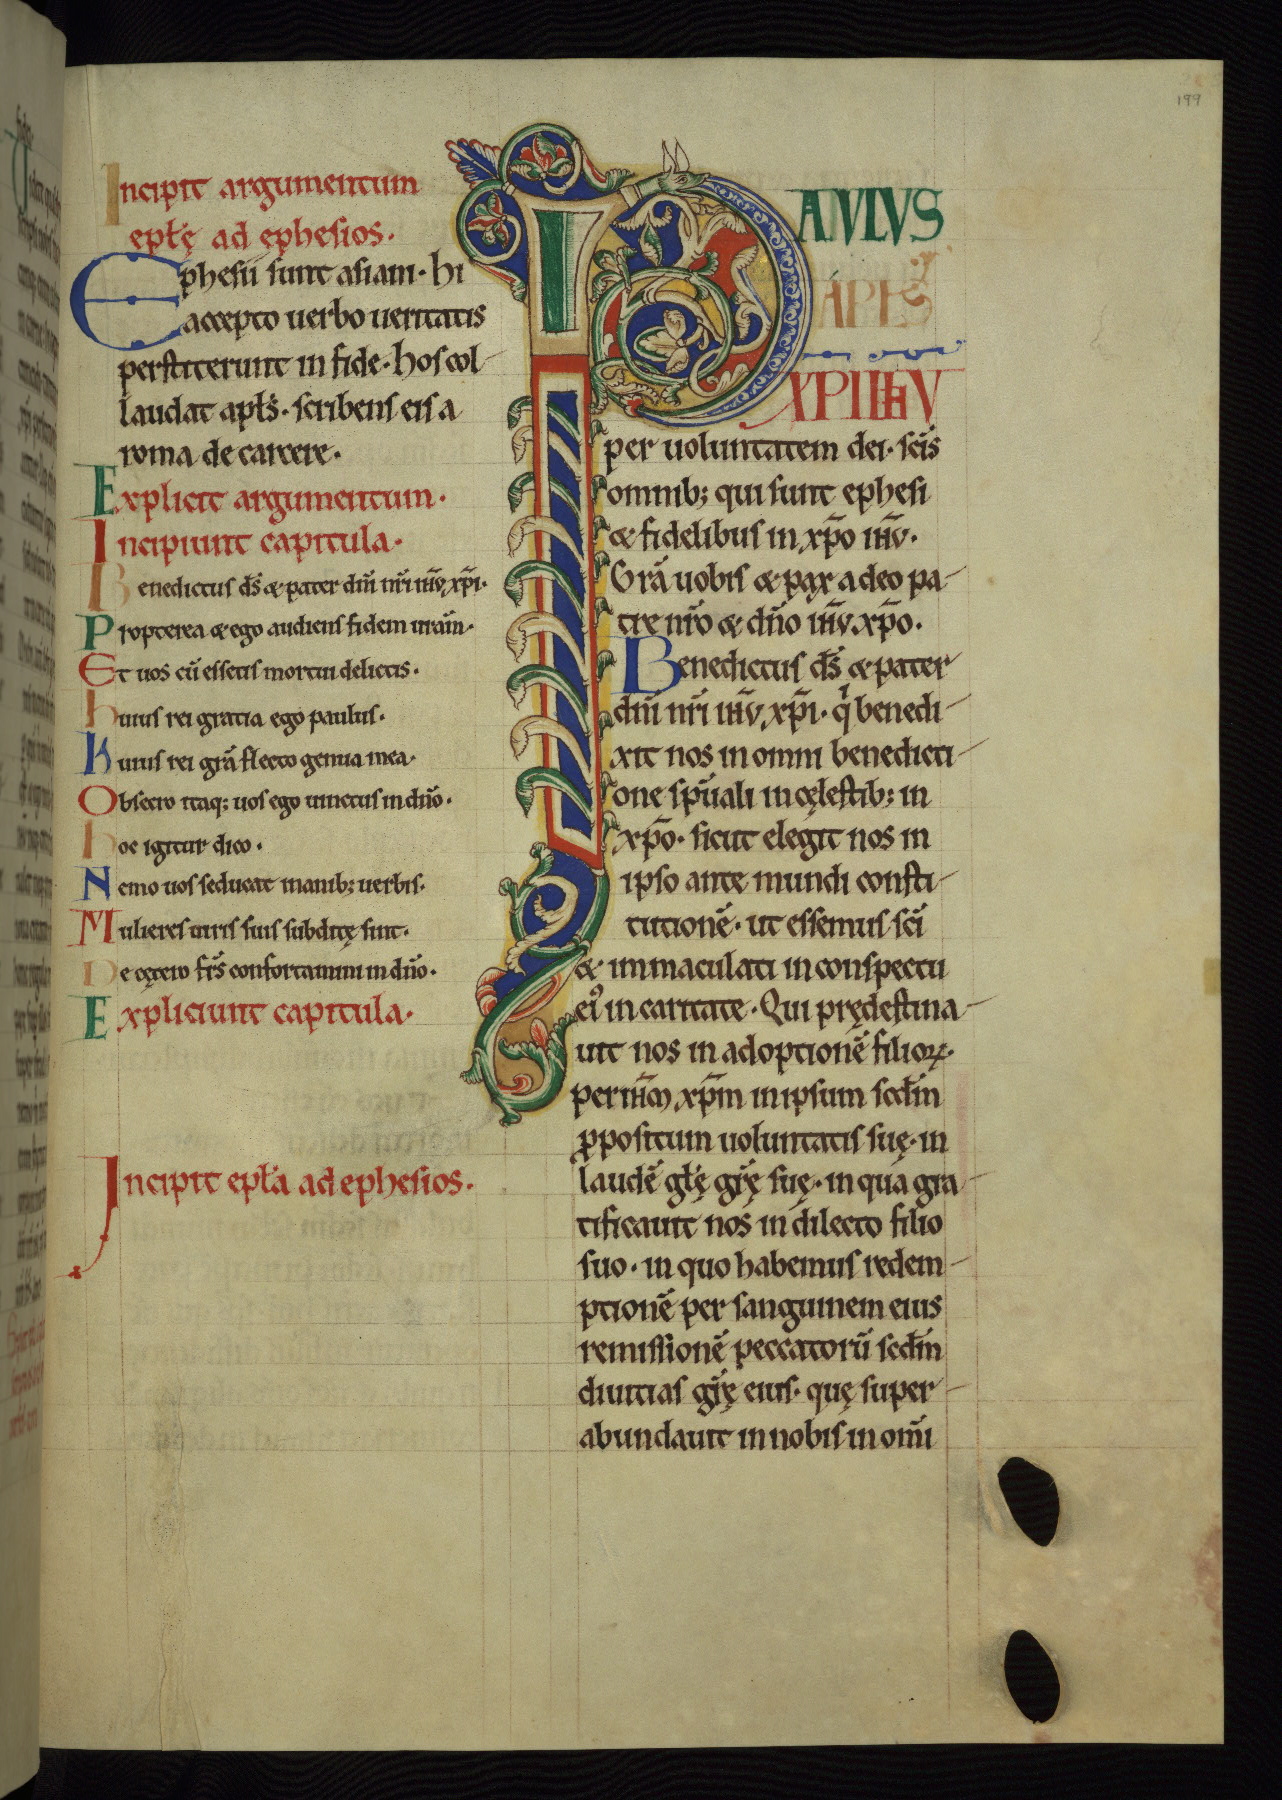 199
Incipit argumentum
epłę ad ephesios.
Ephesii sunt asiani. hi
accepto uerbo ueritatis
perstiterunt in fide. hos col-
laudat apłs. scribens eis a
roma de carcere.
Explicit argumentum.
Incipiunt capitula.
Benedictus d̄s & pater dn̄i nr̄i ih̄u xp̄i.
Propterea & ego audiens fidem ur̄am.
Et uos cū essetis mortui delictis.
huius rei gratia ego paulus.
huius rei gr̄a flecto genua mea.
Obsecro itaq; uos ego uinctus in dn̄o.
hoc igitur dico.
Nemo uos seducat inanib; uerbis.
Mulieres uiris suis subditę sint.
De cętero fr̄s confortamini in dn̄o.
Expliciunt capitula.
Incipit epła ad ephesios.
PAVLVS
APLS
XPI IHV
per uoluntatem dei. sc̄is
omnib; qui sunt ephesi
& fidelibus in xp̄o ih̄u.
Gr̄a uobis & pax a deo pa-
tre nr̄o & dn̄o ih̄u xp̄o.
Benedictus d̄s & pater
dn̄i nr̄i ih̄u xp̄i. qi benedi-
xit nos in omni benedicti-
one sp̄uali in cęlestib; in
xp̄o. sicut elegit nos in
ipso ante mundi consti-
tutionē. ut essemus sc̄i
& immaculati in conspectu
ei᾿ in caritate. Qui prędestina-
uit nos in adoptionē filioꝝ.
per ih̄m xp̄m in ipsum scd̄m
ꝓpositum uoluntatis suę. in
laudē głę gr̄ę suę. in qua gra-
tificauit nos in dilecto filio
suo. in quo habemus redem-
ptionē per sanguinem eius
remissionē peccatorū scd̄m
diuitias gr̄ę eius. quę super-
abundauit in nobis in om̄i